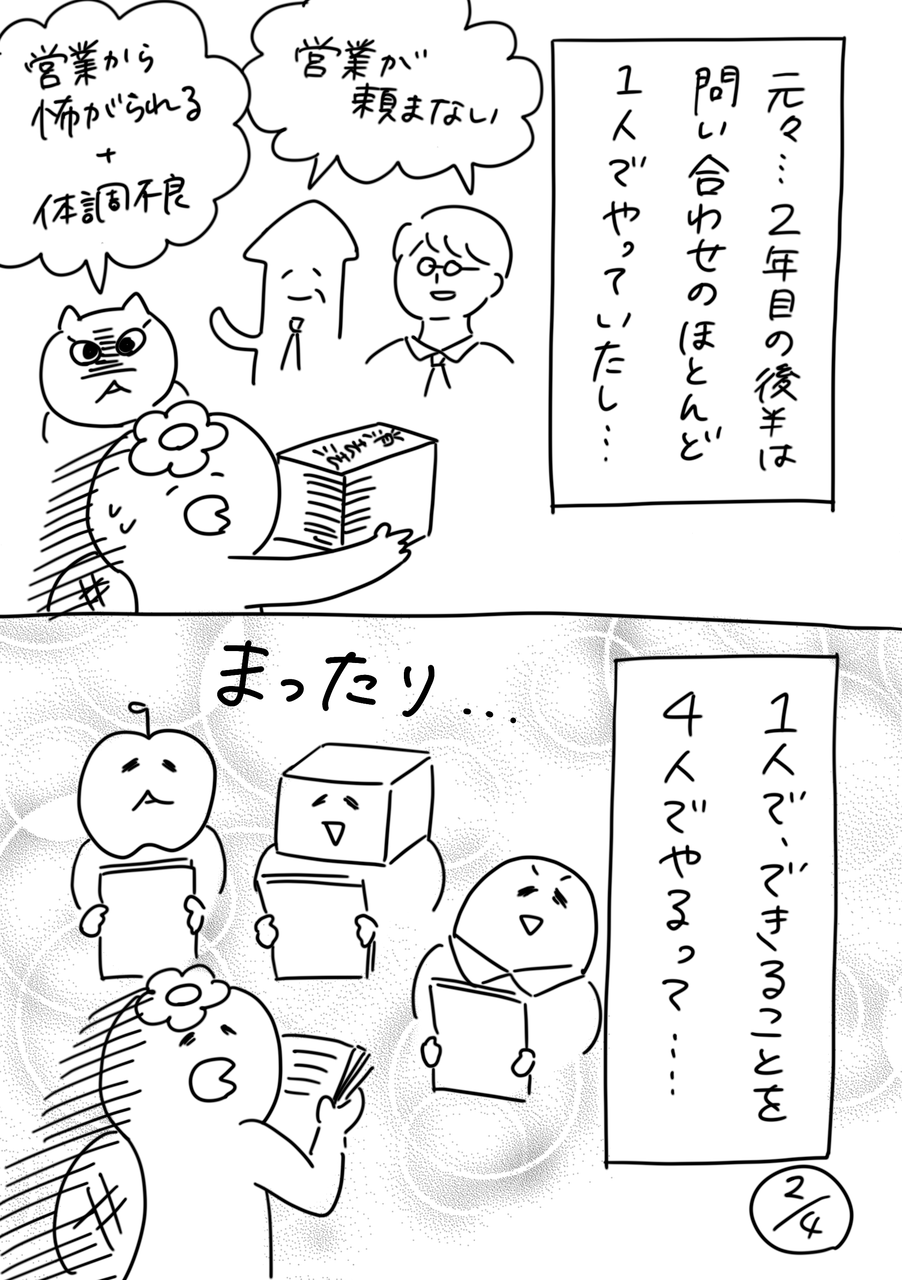 元々…２年目の後半は
問い合わせのほとんど
１人でやっていたし…
営業が
頼まない
営業から
怖がられる
+
体調不良
１人で、できることを
４人でやるって……
まったり...
2/4